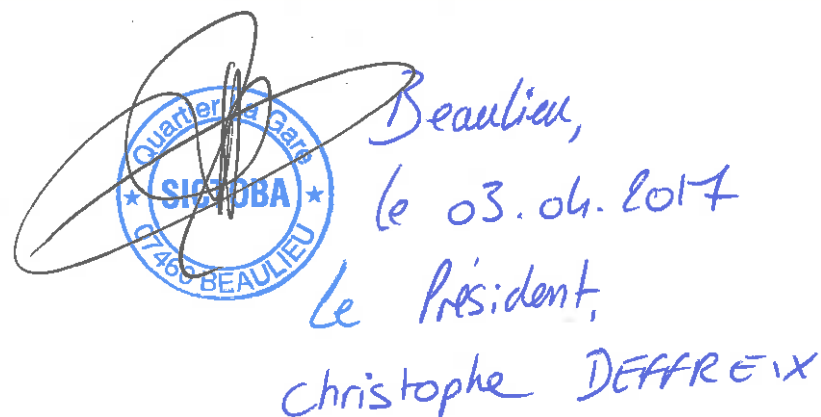 Quartier La Gare
★ SICTOBA ★
07460 BEAULIEU
Beaulieu,
le 03.04.2017
Le Président,
Christophe DEFFREIX